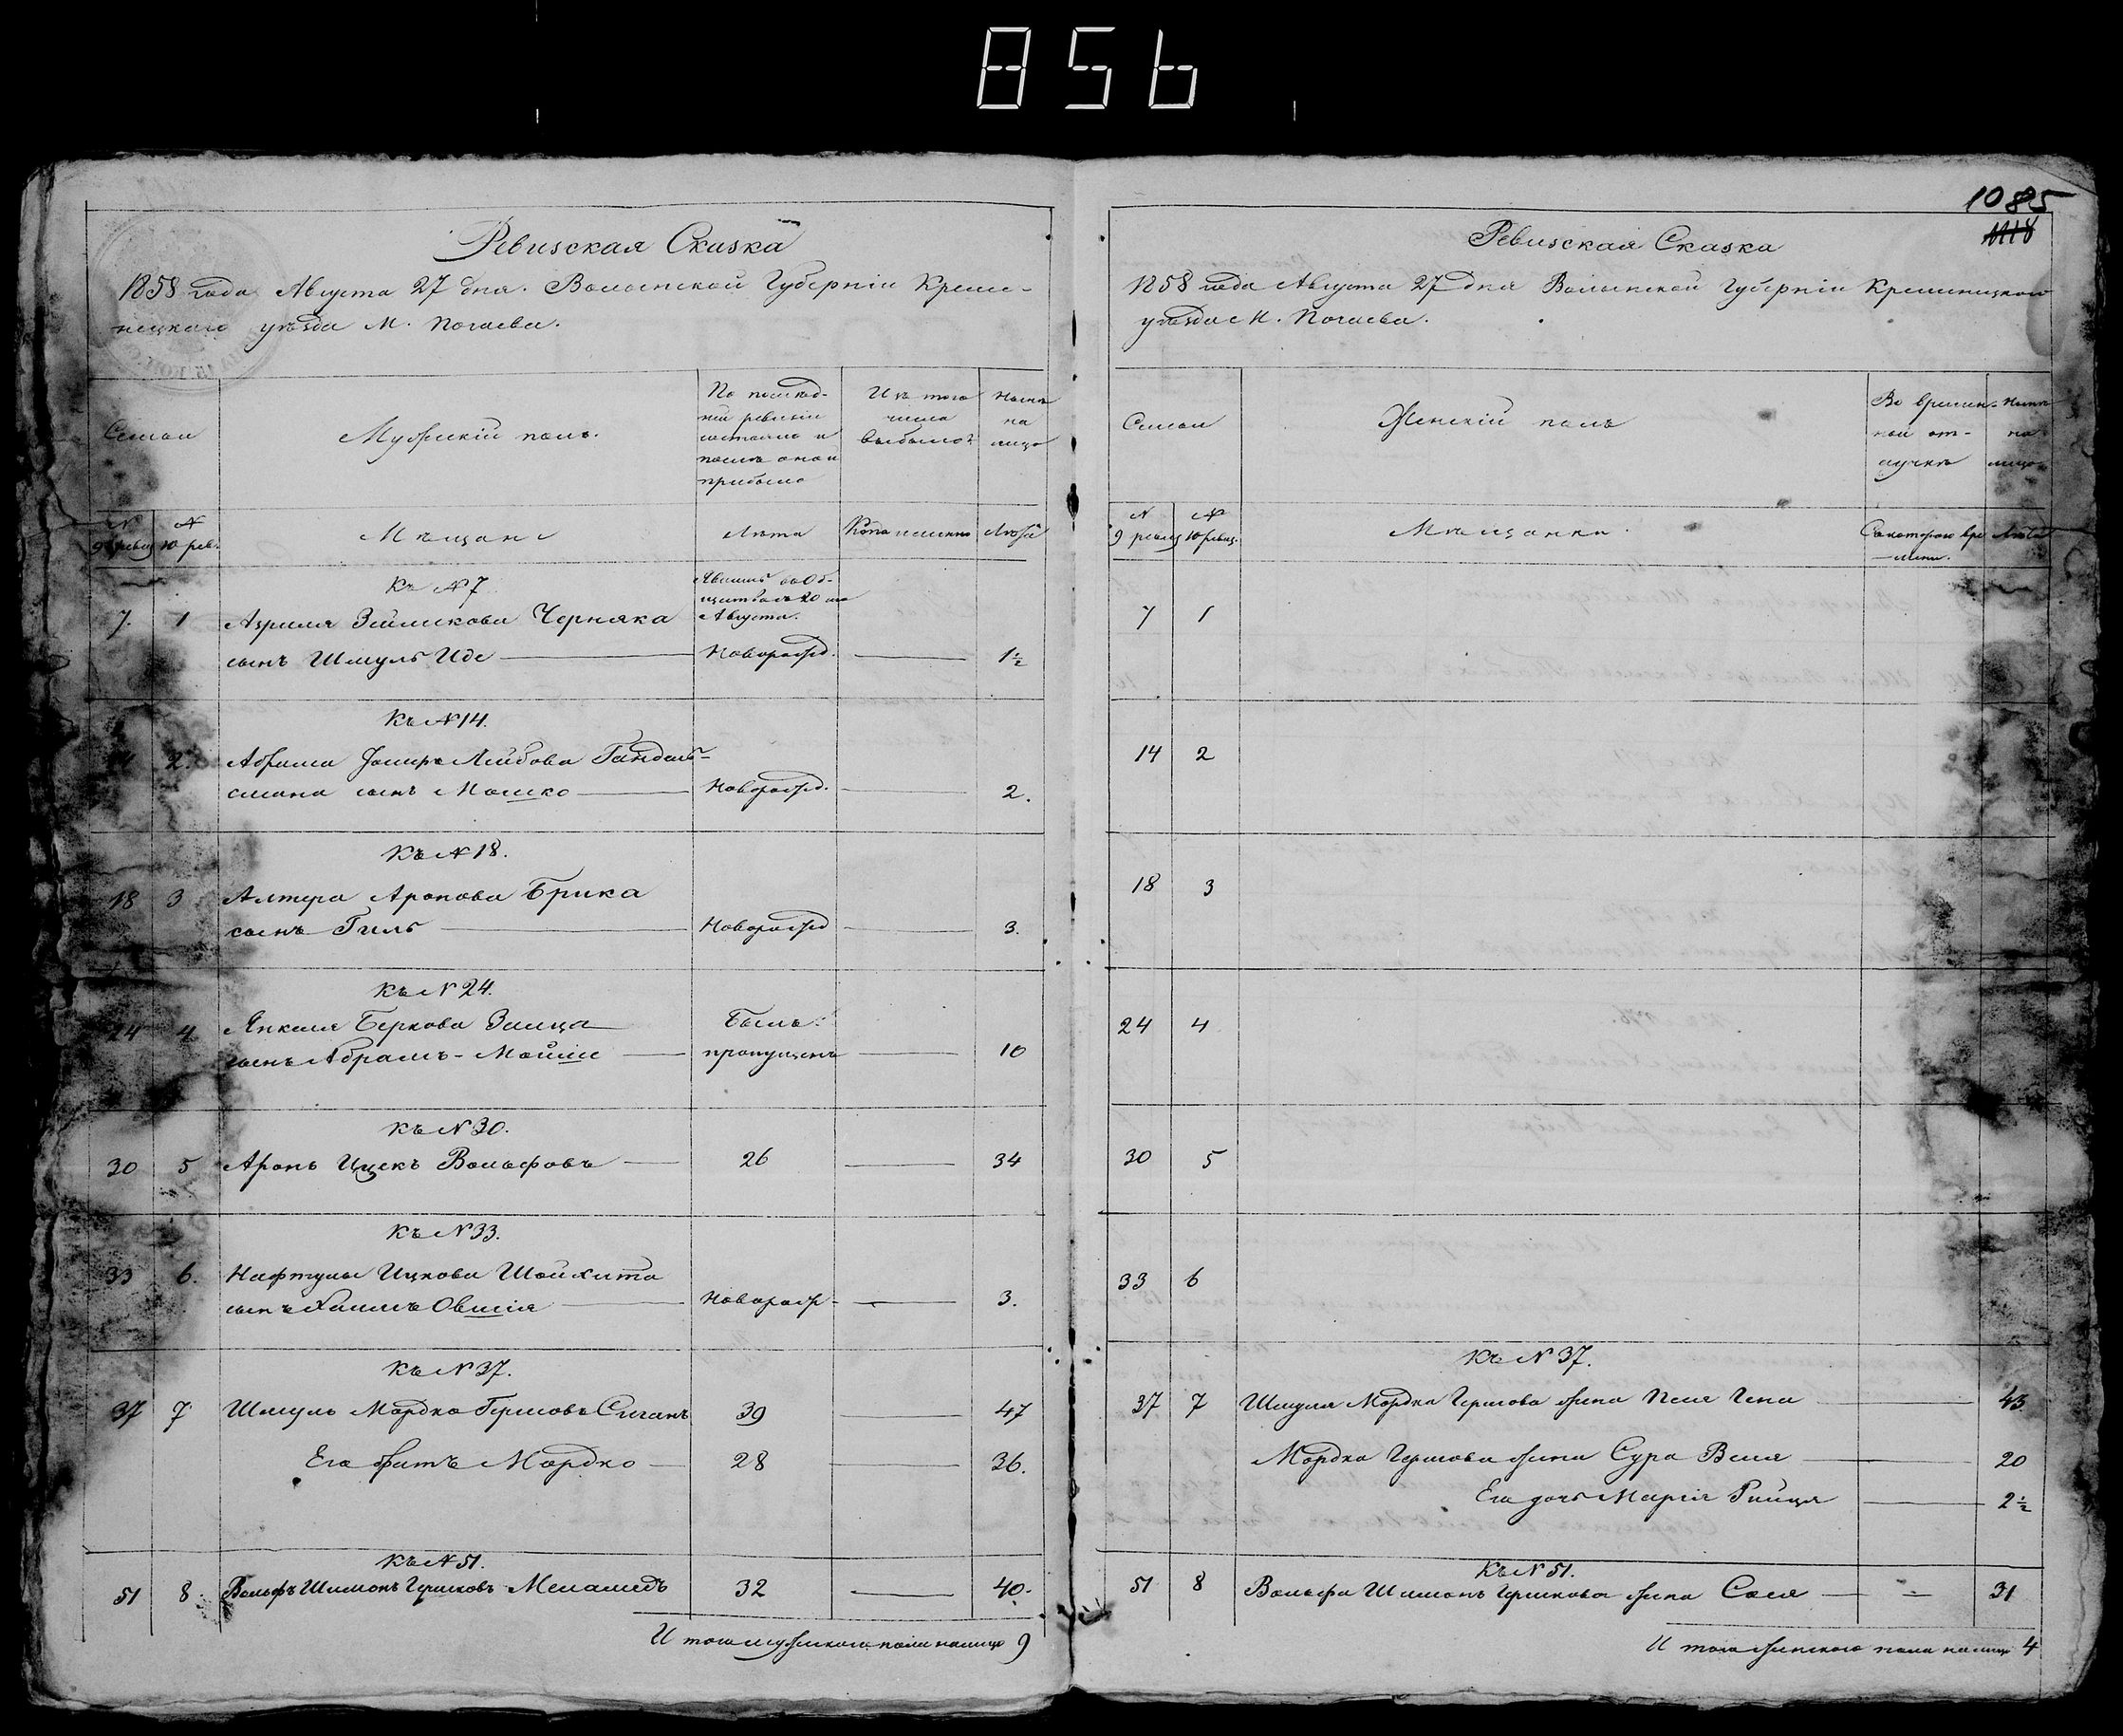 856
Ревизская Сказка
1858 года Августа 27 дня. Волынской Губернiи Креме-
нецкаго уѣзда М. Почаева.
Семьи
Мужескiй полъ.
По послѣд-
ней ревизiи
состояло и
послѣ оной
прибыло
Изъ того
числа
выбыло
Нынѣ
на
лицо
№ 9 ревиз
№ 10 рев.
Мѣщане
Лѣта
Когда именно
Лѣта
Къ № 7
Явились въ Об-
Августа.
7. 1 Азриля Зейликова Черняка
сынъ Шмуль Иде Новорожд. 1½
Къ № 14.
14 2. Абрама Лейбова Гандель-
смана сынъ Мошко Новорожд. 2.
Къ № 18.
18 3 Алтера Аронова Брика
сынъ Гиль Новорожд 3.
Къ № 24.
24 4 Янкеля Беркова Заица Былъ
сынъ Абрамъ-Мойше пропущенъ 10
Къ № 30.
30 5 Аронъ Ицекъ Вольфовъ 26 34
Къ № 33.
33 6. Нафтулы Ицкова Шойхита
сынъ Хаимъ Овшiя Новорож 3.
Къ № 37.
37 7 Шмуль Мордко Гершовъ Сиганъ 39 47
Его братъ Мордко 28 36.
Къ № 51.
51 8 Вольфъ Шимонъ Гершковъ Меламедъ 32 40.
Итого мужескаго пола налицо 9
1085
1118
Ревизская Сказка
1858 года Августа 27 дня Волынской Губернiи Кременецкаго
уѣзда М. Почаева.
Семьи
Женскiй полъ
Во времен-
ной от-
лучкѣ
Нынѣ
на
лицо
№ 9 ревиз
№ 10 ревиз.
Мѣщанки
Съ котораго вре
мени.
Лѣта
7 1
14 2
18 3
24 4
30 5
33 6
Къ № 37.
37 7 Шмуля Мордка Гершова жена Песя Гена 43
Мордка Гершова жена Сура Бейля 20
Его дочь Марiя Рейца 2½
Къ № 51.
51 8 Вольфа Шимонъ Гершкова жена Сося 31
Итого женскаго пола налицо 4